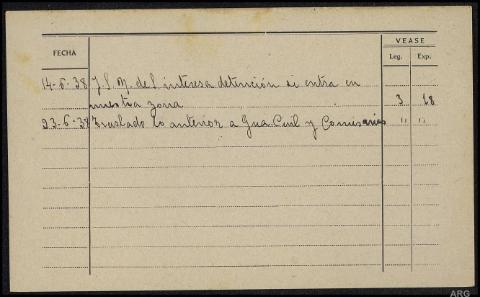 VEASE
FECHA
Leg. Exp.
14-6-38 J.S.M. del interesa detención si entra en
nuestra zona 3 18
23-6-38 Traslado lo anterior a Gua. Civil y Comisarías " "
ARG